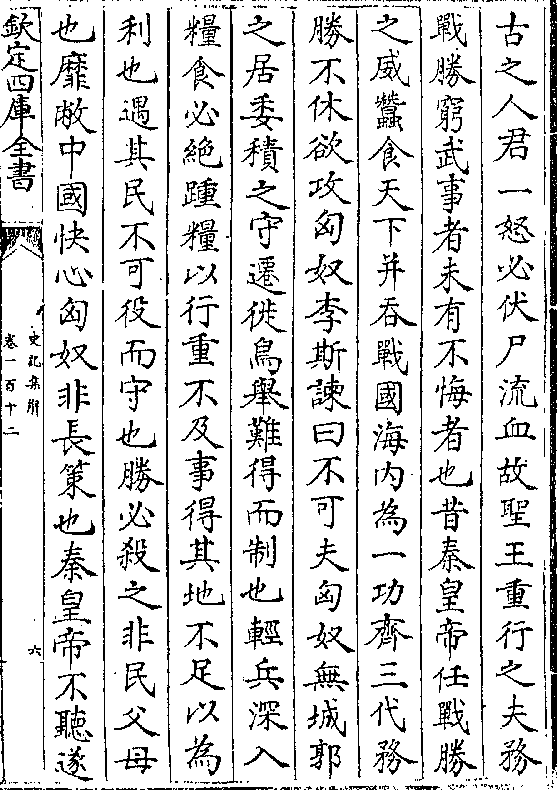 古之人君一怒必伏尸流血故聖王重行之夫務
戰勝窮武事者未有不悔者也昔秦皇帝任戰勝
之威蠶食天下并吞戰國海內為一功齊三代務
勝不休欲攻匈奴李斯諫曰不可夫匈奴無城郭
之居委積之守遷徙鳥舉難得而制也輕兵深入
糧食必絶踵糧以行重不及事得其地不足以為
利也遇其民不可役而守也勝必殺之非民父母
也靡敝中國快心匈奴非長策也秦皇帝不聽遂
欽定四庫全書
史記集解
卷一百十二
六